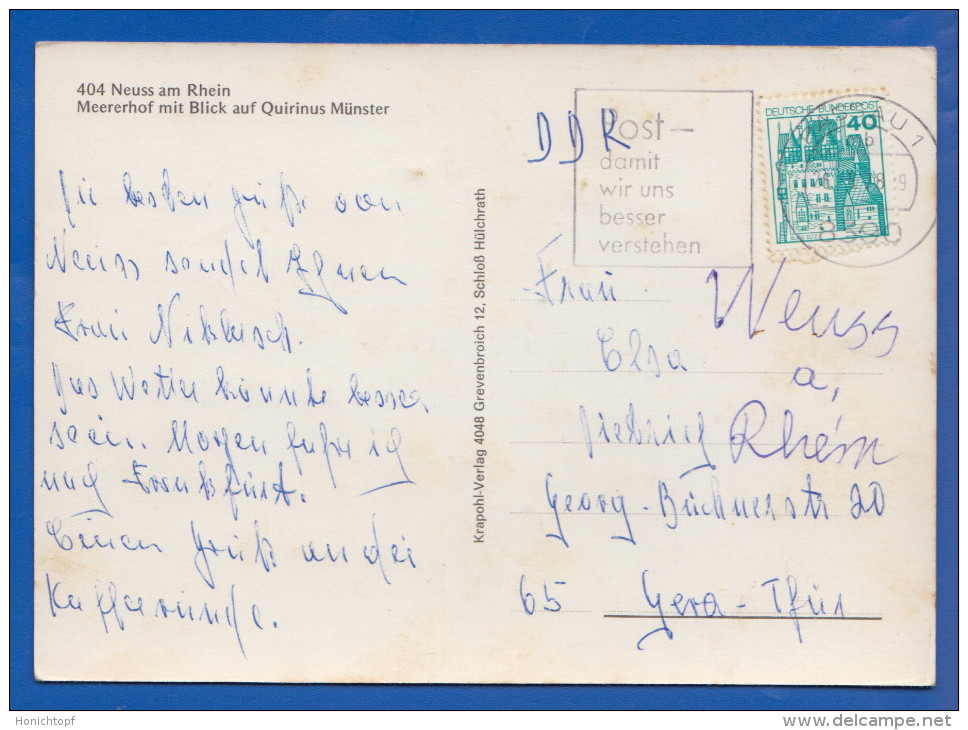 404 Neuss am Rhein
Meererhof mit Blick auf Quirinus Münster
Die besten Grüße von
Neuss sendet Ihnen
Frau
Das Wetter könnte besser
sein. Morgen fahre ich
nach Frankfurt.
Einen Gruß an die
Kaffeerunde.
Krapohl-Verlag 4048 Grevenbroich 12, Schloß Hülchrath
DDR
Post –
damit
wir uns
besser
verstehen
DEUTSCHE BUNDESPOST
40
1
8300
Frau
Elsa
Diedrich
Georg-Büchnerstr 20
65 Gera-Thür
Neuss
a,
Rhein
Honichtopf
www.delcampe.net